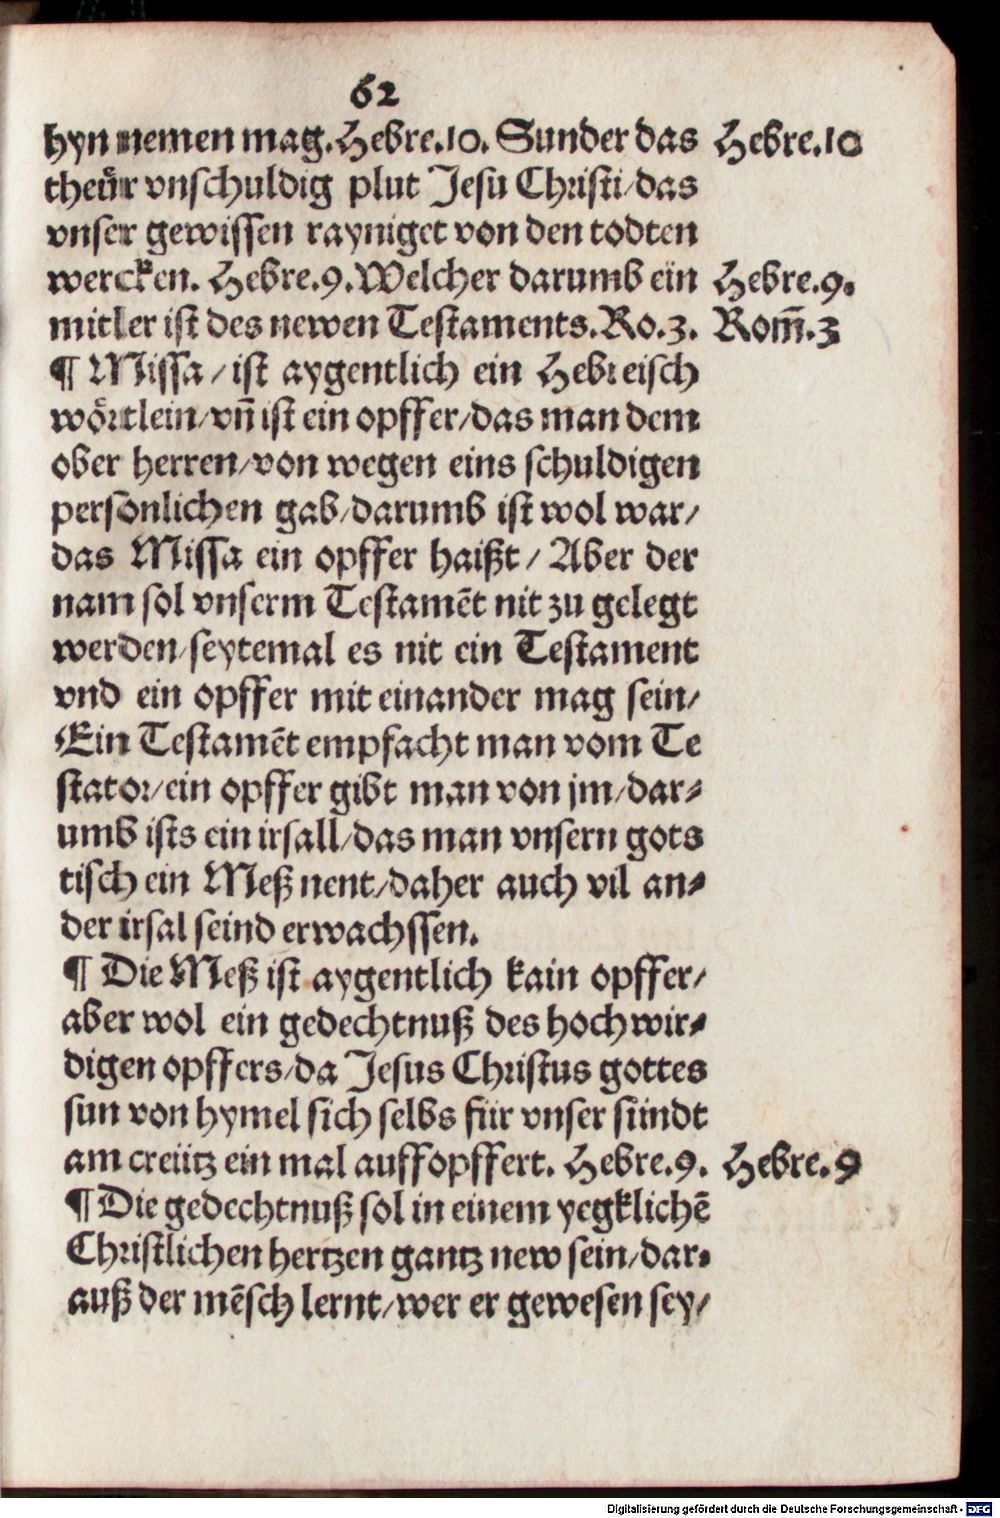 62
hyn nemen mag. Hebre.10. Sunder das Hebre.10
theuͤr vnschuldig plut Jesu Christi/das
vnser gewissen rayniget von den todten
wercken. Hebre.9. Welcher darumb ein Hebre.9.
mitler ist des newen Testaments.Ro.3. Rom̄.3
¶ Missa/ist aygentlich ein Hebreisch
woͤrtlein/vn̄ ist ein opffer/das man dem
ober herren/von wegen eins schuldigen
personlichen gab/darumb ist wol war/
das Missa ein opffer haißt/Aber der
nam sol vnserm Testamēt nit zu gelegt
werden/seytemal es nit ein Testament
vnd ein opffer mit einander mag sein/
Ein Testamēt empfacht man vom Te
stator/ein opffer gibt man von jm/dar⸗
umb ists ein irsall/das man vnsern gots
tisch ein Meß nent/daher auch vil an⸗
der irsal seind erwachssen.
¶ Die Meß ist aygentlich kain opffer/
aber wol ein gedechtnuß des hochwir⸗
digen opffers/da Jesus Christus gottes
sun von hymel sich selbs für vnser sündt
am creütz ein mal auffopffert. Hebre.9. Hebre.9
¶ Die gedechtnuß sol in einem yegklichē
Christlichen hertzen gantz new sein/dar⸗
auß der mēsch lernt/wer er gewesen sey/
Digitalisierung gefördert durch die Deutsche Forschungsgemeinschaft - DFG